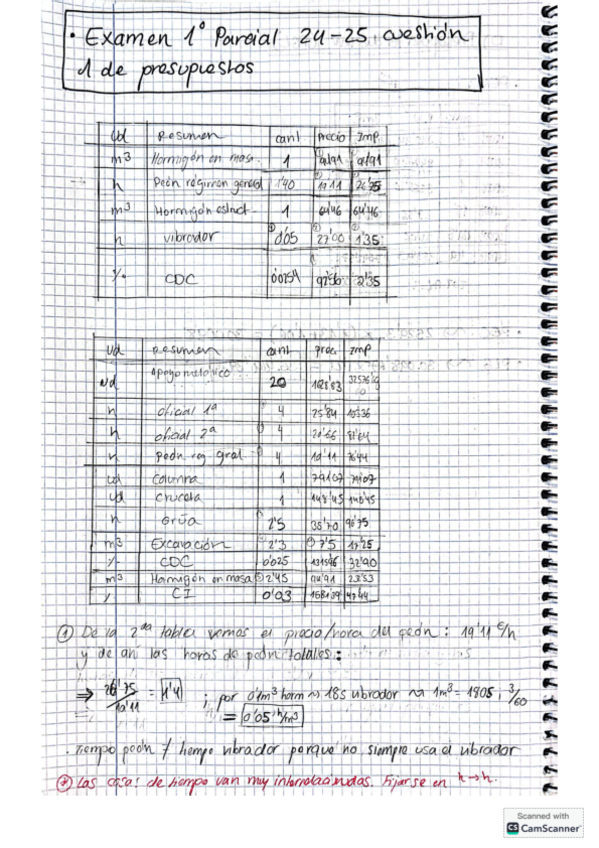 • Examen 1º Parcial 24-25 cuestión
1 de presupuestos
Ud Resumen cant Precio Imp.
m3 Hormigón en masa. 1 94'91 94'91
h Peón régimen general 1'40 19'11 26'75
m3 Hormigón estruct. 1 64'46 64'46
h vibrador 0'05 27'00 1'35
% CDC 0'0254 92'56 2'35
Ud Resumen cant Prec. Imp
Ud Apoyo metálico 20
h oficial 1ª 4 25'84 103'36
h oficial 2ª 4 20'66 82'64
h peón reg gral 4 19'11 76'44
ud Columna 1 791'07 791'07
ud Cruceta 1 148'45 148'45
h Grúa 2'5 38'70 96'75
m3 Excavación 2'3 7'5 17'25
% CDC 0'025 32'90
m3 Hormigón en masa 2'45
% CI 0'03 47'44
① De la 2da tabla vemos el precio/hora del peón: 19'11 €/h
y de ahí las horas de peón totales:
⇒ 26'75/19'11 = 1'4 ; por 0'1m3 horm ~ 18s vibrador ~ 1m3 = 180s ; 3/60
= 0'05 h/m3
. Tiempo peón ≠ tiempo vibrador porque no siempre usa el vibrador
Las cosas de tiempo van muy interrelacionadas. Fijarse en h → h.
Scanned with
CS CamScanner